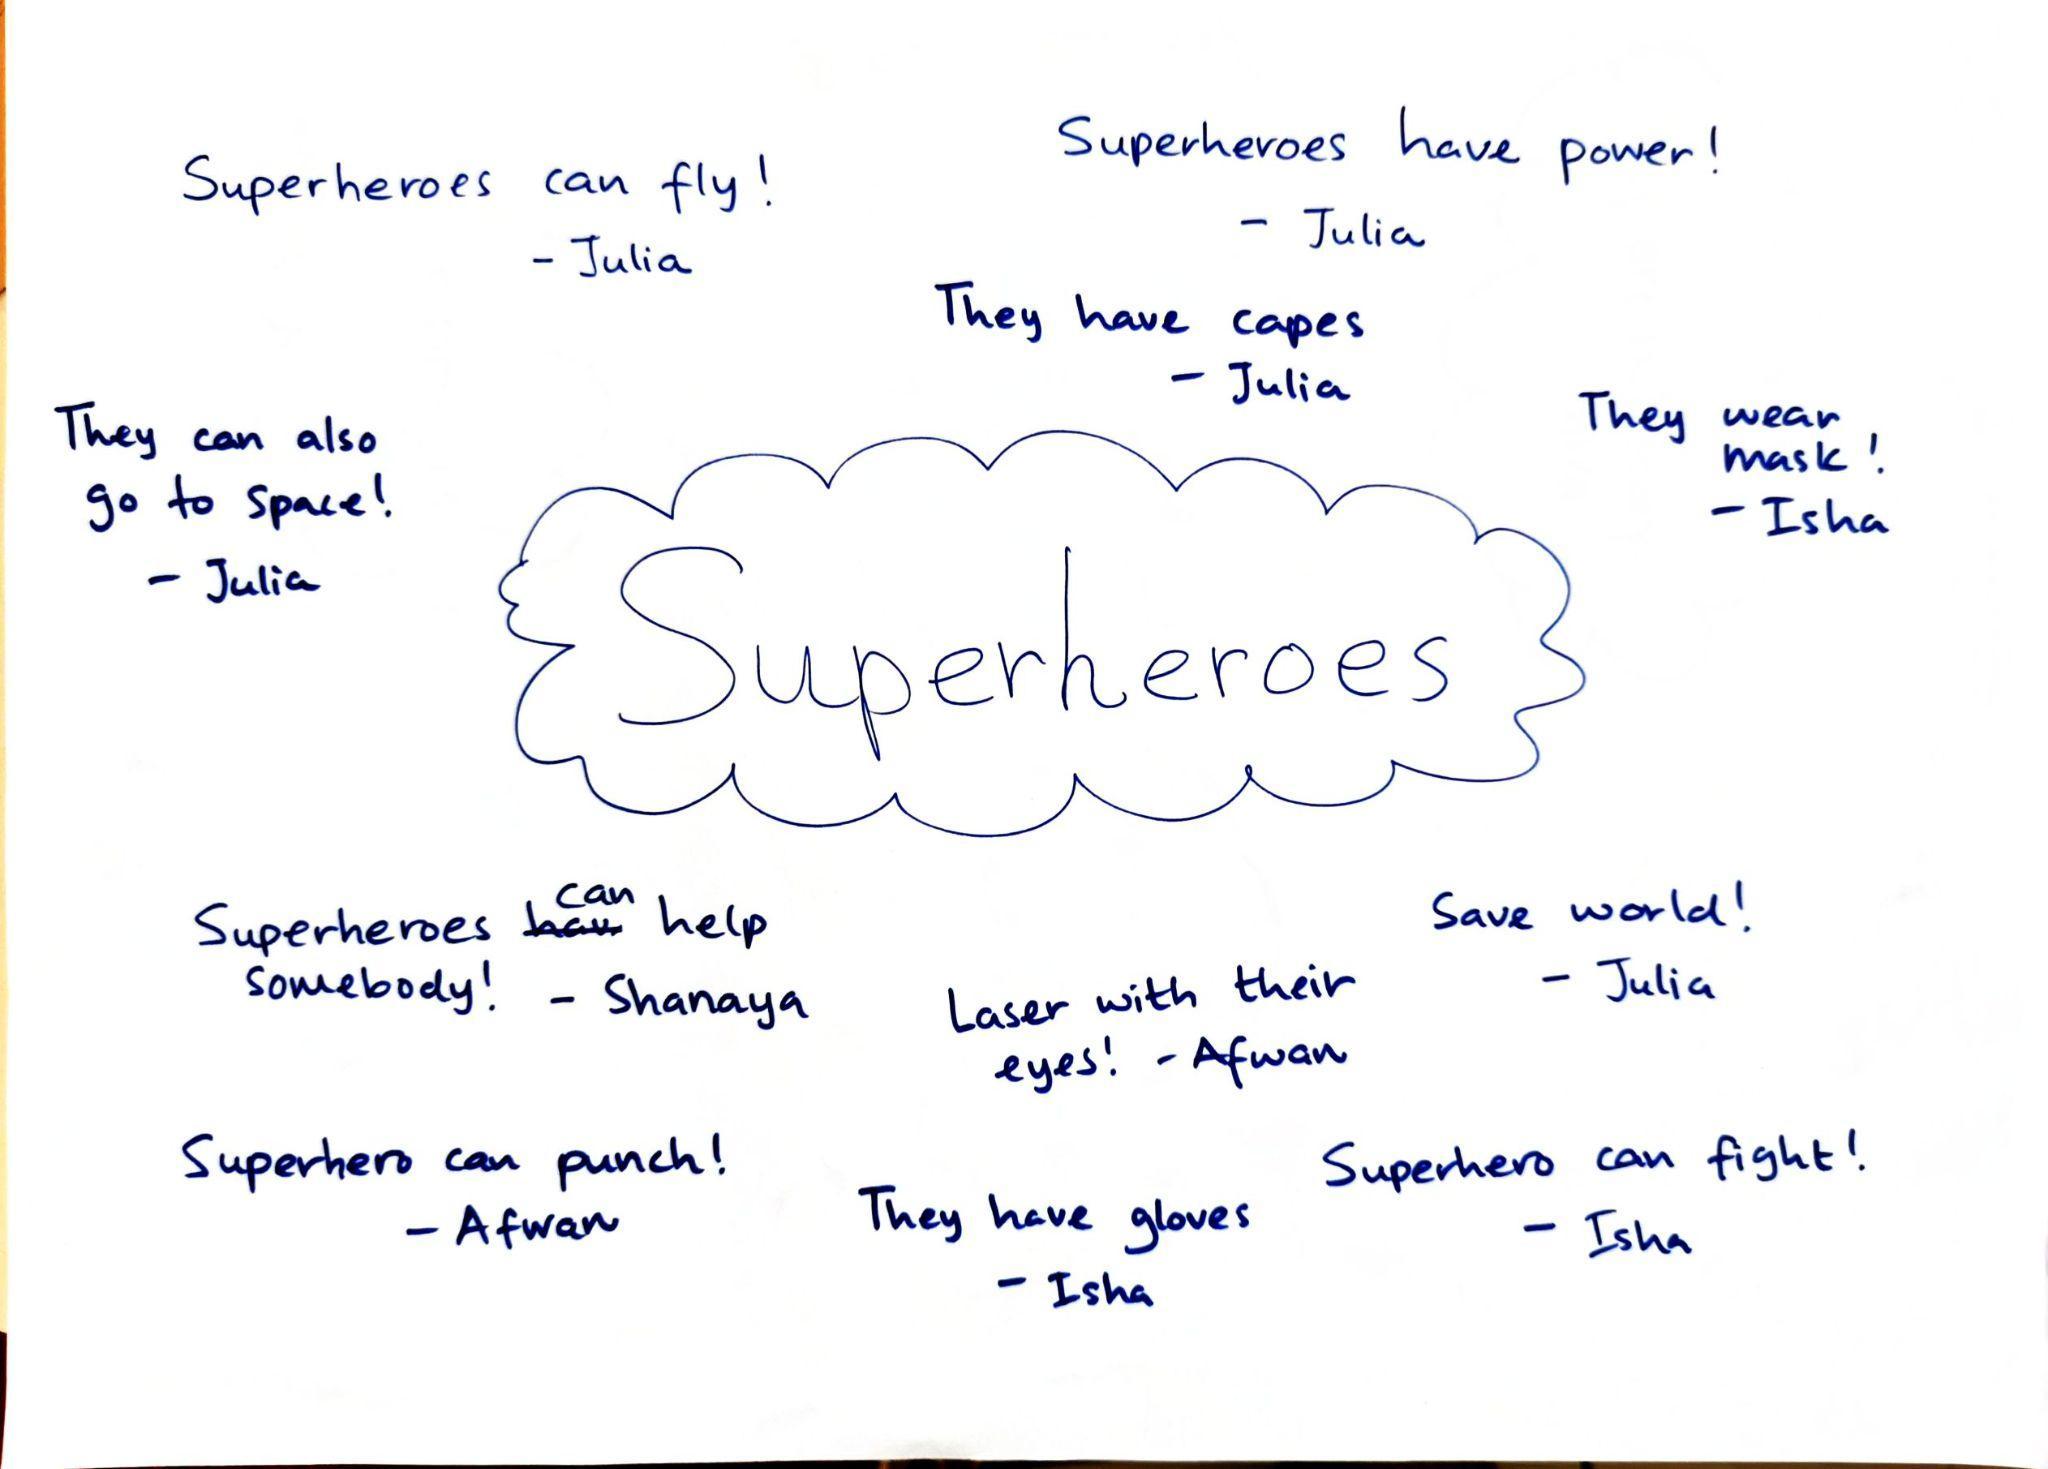 Superheroes can fly!
- Julia
Superheroes have power!
- Julia
They have capes
- Julia
They can also
go to space!
- Julia
They wear
mask!
- Isha
Superheroes
Superheroes can help
somebody! - Shanaya
Laser with their
eyes! - Afwan
Save world!
- Julia
Superhero can punch!
- Afwan
They have gloves
- Isha
Superhero can fight!
- Isha